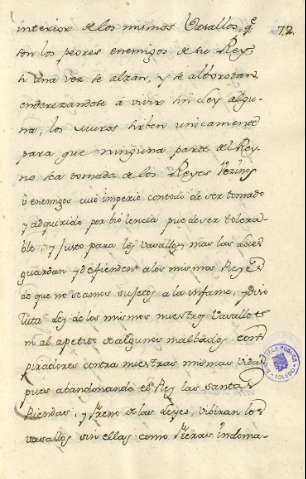 72
interior de los mismos Vasallos, q.e
son los peores enemigos de su Rey
si una vez se alzan, y se alborotan
enderezandose à vivir sin Ley algu-
na, los muros sirben unicamente
para que ninguna parte del Rey-
no sea tomada de los Reyes Vezinos
ò enemigos cuio imperio contenido de ser tomado
y adquirido por biolencia puede ser tolera-
ble, y justo para los vasallos, mas las Leyes
guardan y defienden à los mismos Reyes
de que no seamos sujetos à la infame, y diso
luta Ley de los mismos nuestros Vasallos
ni al apetito de algunos malbados cons
piradores contra nuestras mismas vidas
pues abandonando el Rey las santas
Riendas, y freno de las Leyes, vibiran los
vasallos sin ellas como fieras indoma-